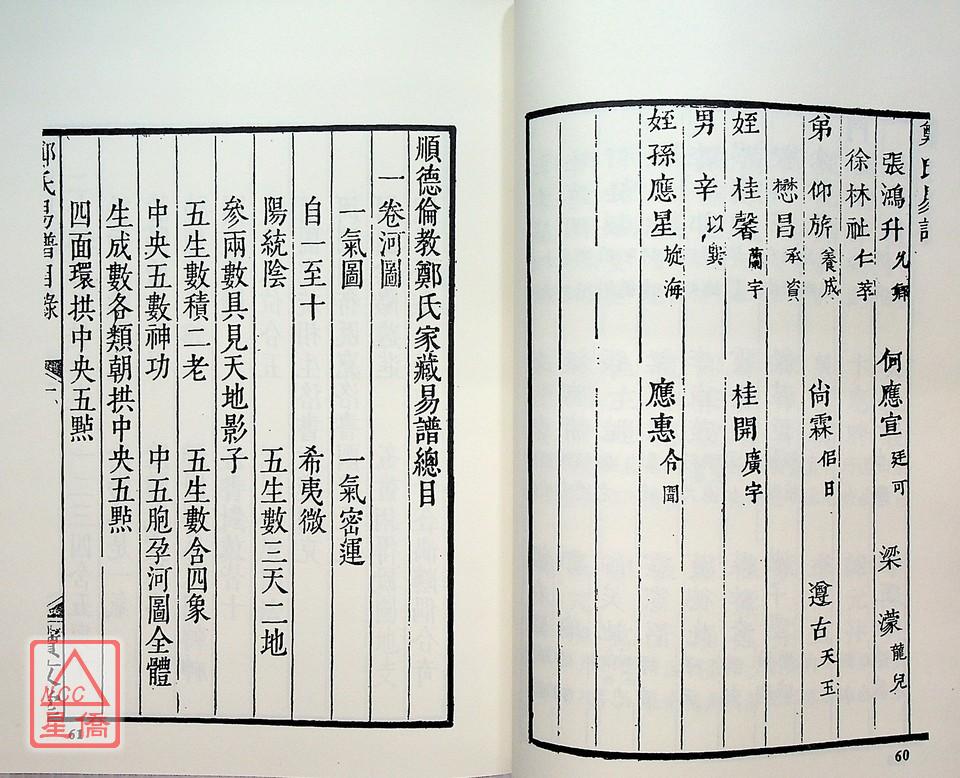 鄭氏易譜
張鴻升 何應宣廷可 梁濛龍兒
徐林祉仁莘
弟仰旂養成 尚霖侶日 遵古天玉
懋昌承資
姪桂馨蘭宇 桂開廣宇
男辛以巽
姪孫應星旋海 應惠令聞
60
順德倫教鄭氏家藏易譜總目
一卷河圖
一氣圖 一氣密運
自一至十 希夷微
陽統陰 五生數三天二地
參兩數具見天地影子
五生數積二老 五生數含四象
中央五數神功 中五胞孕河圖全體
生成數各類朝拱中央五點
四面環拱中央五點
鄭氏易譜目錄 一
61
NCC
星僑